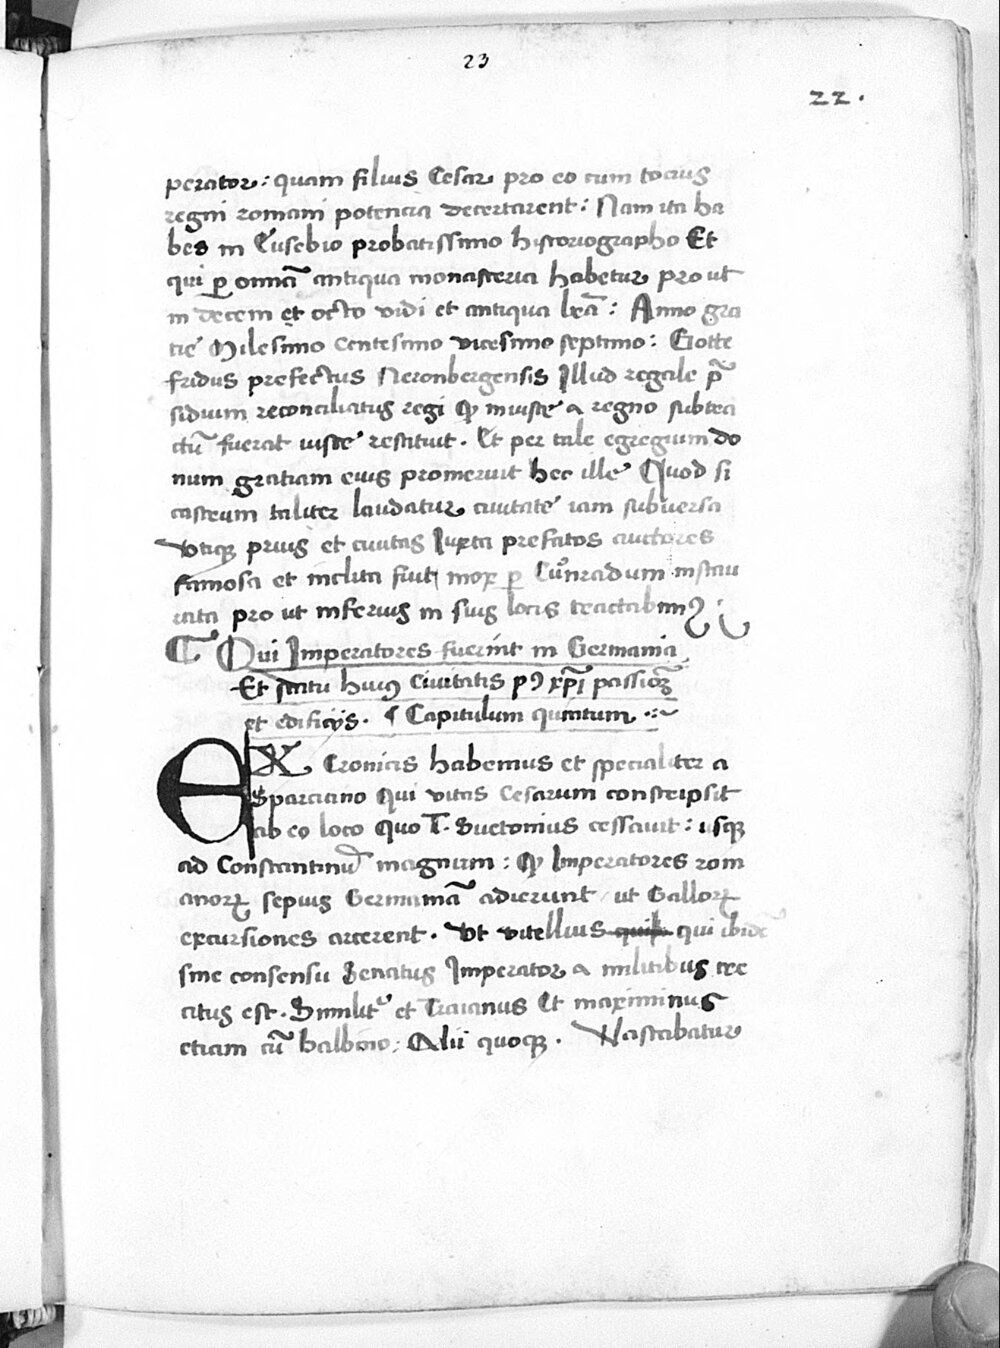 23
22.
perator: quam filius Cesar pro eo cum tocius
regni romani potencia decertarent: Nam ita ha
bes in Eusebio probatissimo historiographo Et
qui ꝑ om̄ia antiqua monasteria habetur prout
in decem et octo vidi et antiqua lr̄a: Anno gra
tie Milesimo centesimo vicesimo septimo: Gotte
fridus prefectus Neronbergensis Illud regale p̄
sidium reconciliatus regi ꝙ iniuste a regno subtra
ctū fuerat iuste restituit. Et per tale egregium do
num gratiam eius promeruit hec ille Quod si
castrum taliter laudatur ciuitate iam subuersa
Vtiqꝫ prius et ciuitas Iuxta prefatos auctores
famosa et inclita fuit mox ꝑ Cūnradum instau
rata pro ut inferius in suis locis tractabimꝰ
Qui Imperatores fuerint in Germania
Et statu huiꝰ Ciuitatis pꝰ xp̄i passioꝫ
et edificijs. ¶ Capitulum quartum
EX Cronicis habemus et specialiter a
Sparciano Qui vitas Cesarum conscripsit
ab eo loco Quo T. Suetonius cessauit: usqꝫ
ad Constantinū magnum: ꝙ Imperatores rom
anorꝝ sepius Germaniā adierunt ut Gallorꝝ
excursiones arcerent. Vt vitellius qui ibidē
sine consensu Senatus Imperator a militibus cre
atus est. Similitʳ et Traianus Et maximinus
etiam cū balbino: Alii quoqꝫ. Vastabatur